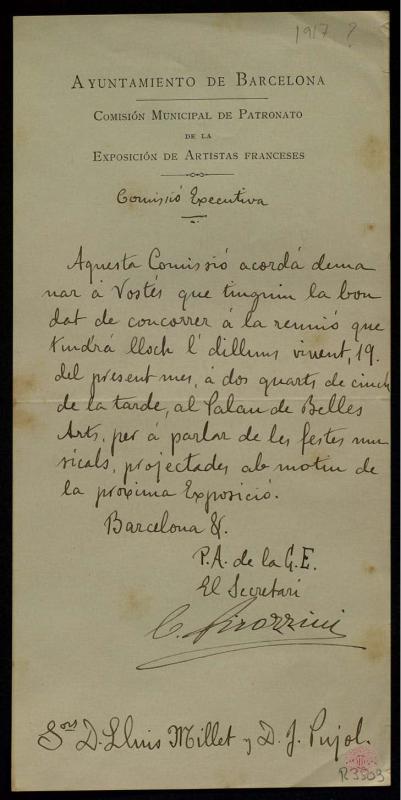 1917 ?
AYUNTAMIENTO DE BARCELONA
COMISIÓN MUNICIPAL DE PATRONATO
DE LA
EXPOSICIÓN DE ARTISTAS FRANCESES
Comissió Executiva
Aquesta Comissió acordá dema
nar á Vostés que tinguin la bon
dat de concorrer á la reunió que
tindrá lloch l' dilluns vinent, 19.
del present mes, á dos quarts de cinch
de la tarde, al Palau de Belles
Arts, per á parlar de les festes mu
sicals, projectades ab motiu de
la próxima Exposició.
Barcelona &.
P.A. de la C.E.
El Secretari
C. Pirozzini
Sors D. Lluis Millet y D. J. Pujol.
R3503